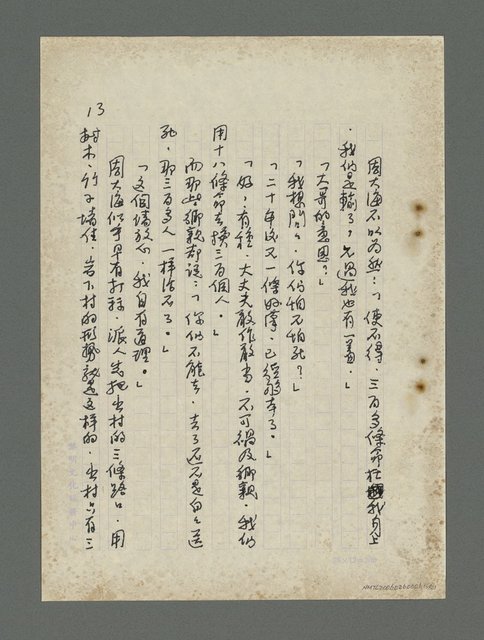 周大海不以為然：「使不得，三百多條命在我身上
，我們是輸了，不過我也有一著。」
「大哥的意思？」
「我想問，你們怕不怕死？」
「二十年後又一條好漢，已經夠本了。」
「好，有種，大丈夫敢作敢當，不可禍及鄉親，我們
用十八條命去換三百個人。」
而那些鄉親卻說：「你們不能去，去了還不是白白送
死，那三百多人一樣活不了。」
「這個請放心，我自有道理。」
周大海似乎早有打算，派人先把出村的三條路口，用
樹木、竹子堵住，岩下村的形勢就是這樣的，出村只有三
13